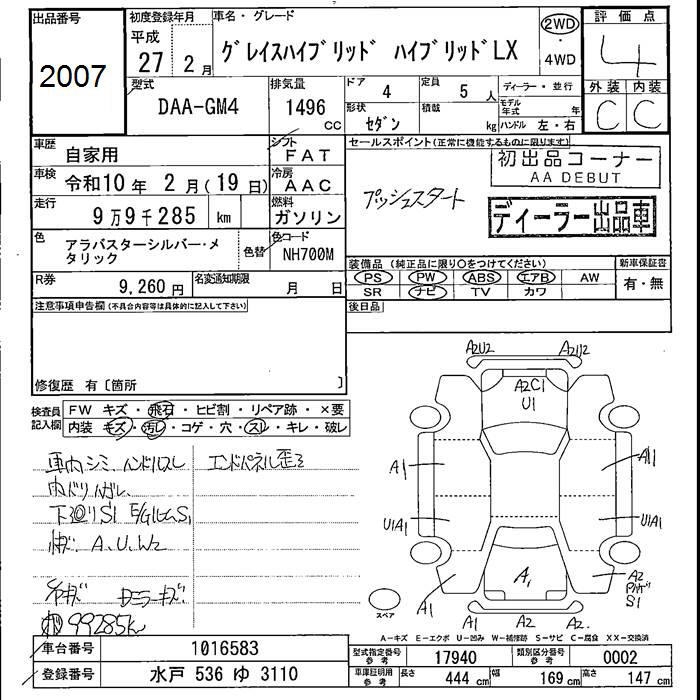 出品番号
2007
初度登録年月
平成
27 2月
車名・グレード
グレイスハイブリッド ハイブリッドLX
2WD
・
4WD
評価点
4
外装 内装
C C
型式
DAA-GM4
排気量
1496
CC
ドア
4
定員
5 人
形状
セダン
積載
kg
ディーラー・並行
モデル年式 年
ハンドル 左・右
車歴
自家用
シフト
FAT
車検
令和10年 2月(19日)
冷房
AAC
走行
9万9千285 km
燃料
ガソリン
色
アラバスターシルバー・メ
タリック
色替
色コード
NH700M
R券
9,260円
名変通知期限
月 日
セールスポイント(正常に機能するものに限ります)
プッシュスタート
初出品コーナー
AA DEBUT
ディーラー出品車
装備品(純正品に限り○をつけてください)
PS PW ABS エアB AW
SR ナビ TV カワ
新車保証書
有・無
後日品
注意事項申告欄(不具合内容等は具体的に記入して下さい)
修復歴 有〔箇所 〕
検査員
記入欄
FW キズ・飛石・ヒビ割・リペア跡・×要
内装 キズ・汚レ・コゲ・穴・スレ・キレ・破レ
車内シミ、ハンドルスレ
エンドパネル歪ミ
内ドリハガレ
下廻リS1 E/GルームS1
A、U、W2
ミラーキズ
99285km
A2U2
A2U2
A2C1
U1
A1
A1
U1A1
U1A1
A1
A1
A2
S1
A2
A2
A2
スペア
A-キズ E-エクボ U-凹み W-補修跡 S-サビ C-腐食 XX-交換済
車台番号
1016583
登録番号
水戸 536 ゆ 3110
型式指定番号
参考
17940
類別区分番号
参考
0002
車庫証明用
参考
長さ
444 cm
幅
169 cm
高さ
147 cm